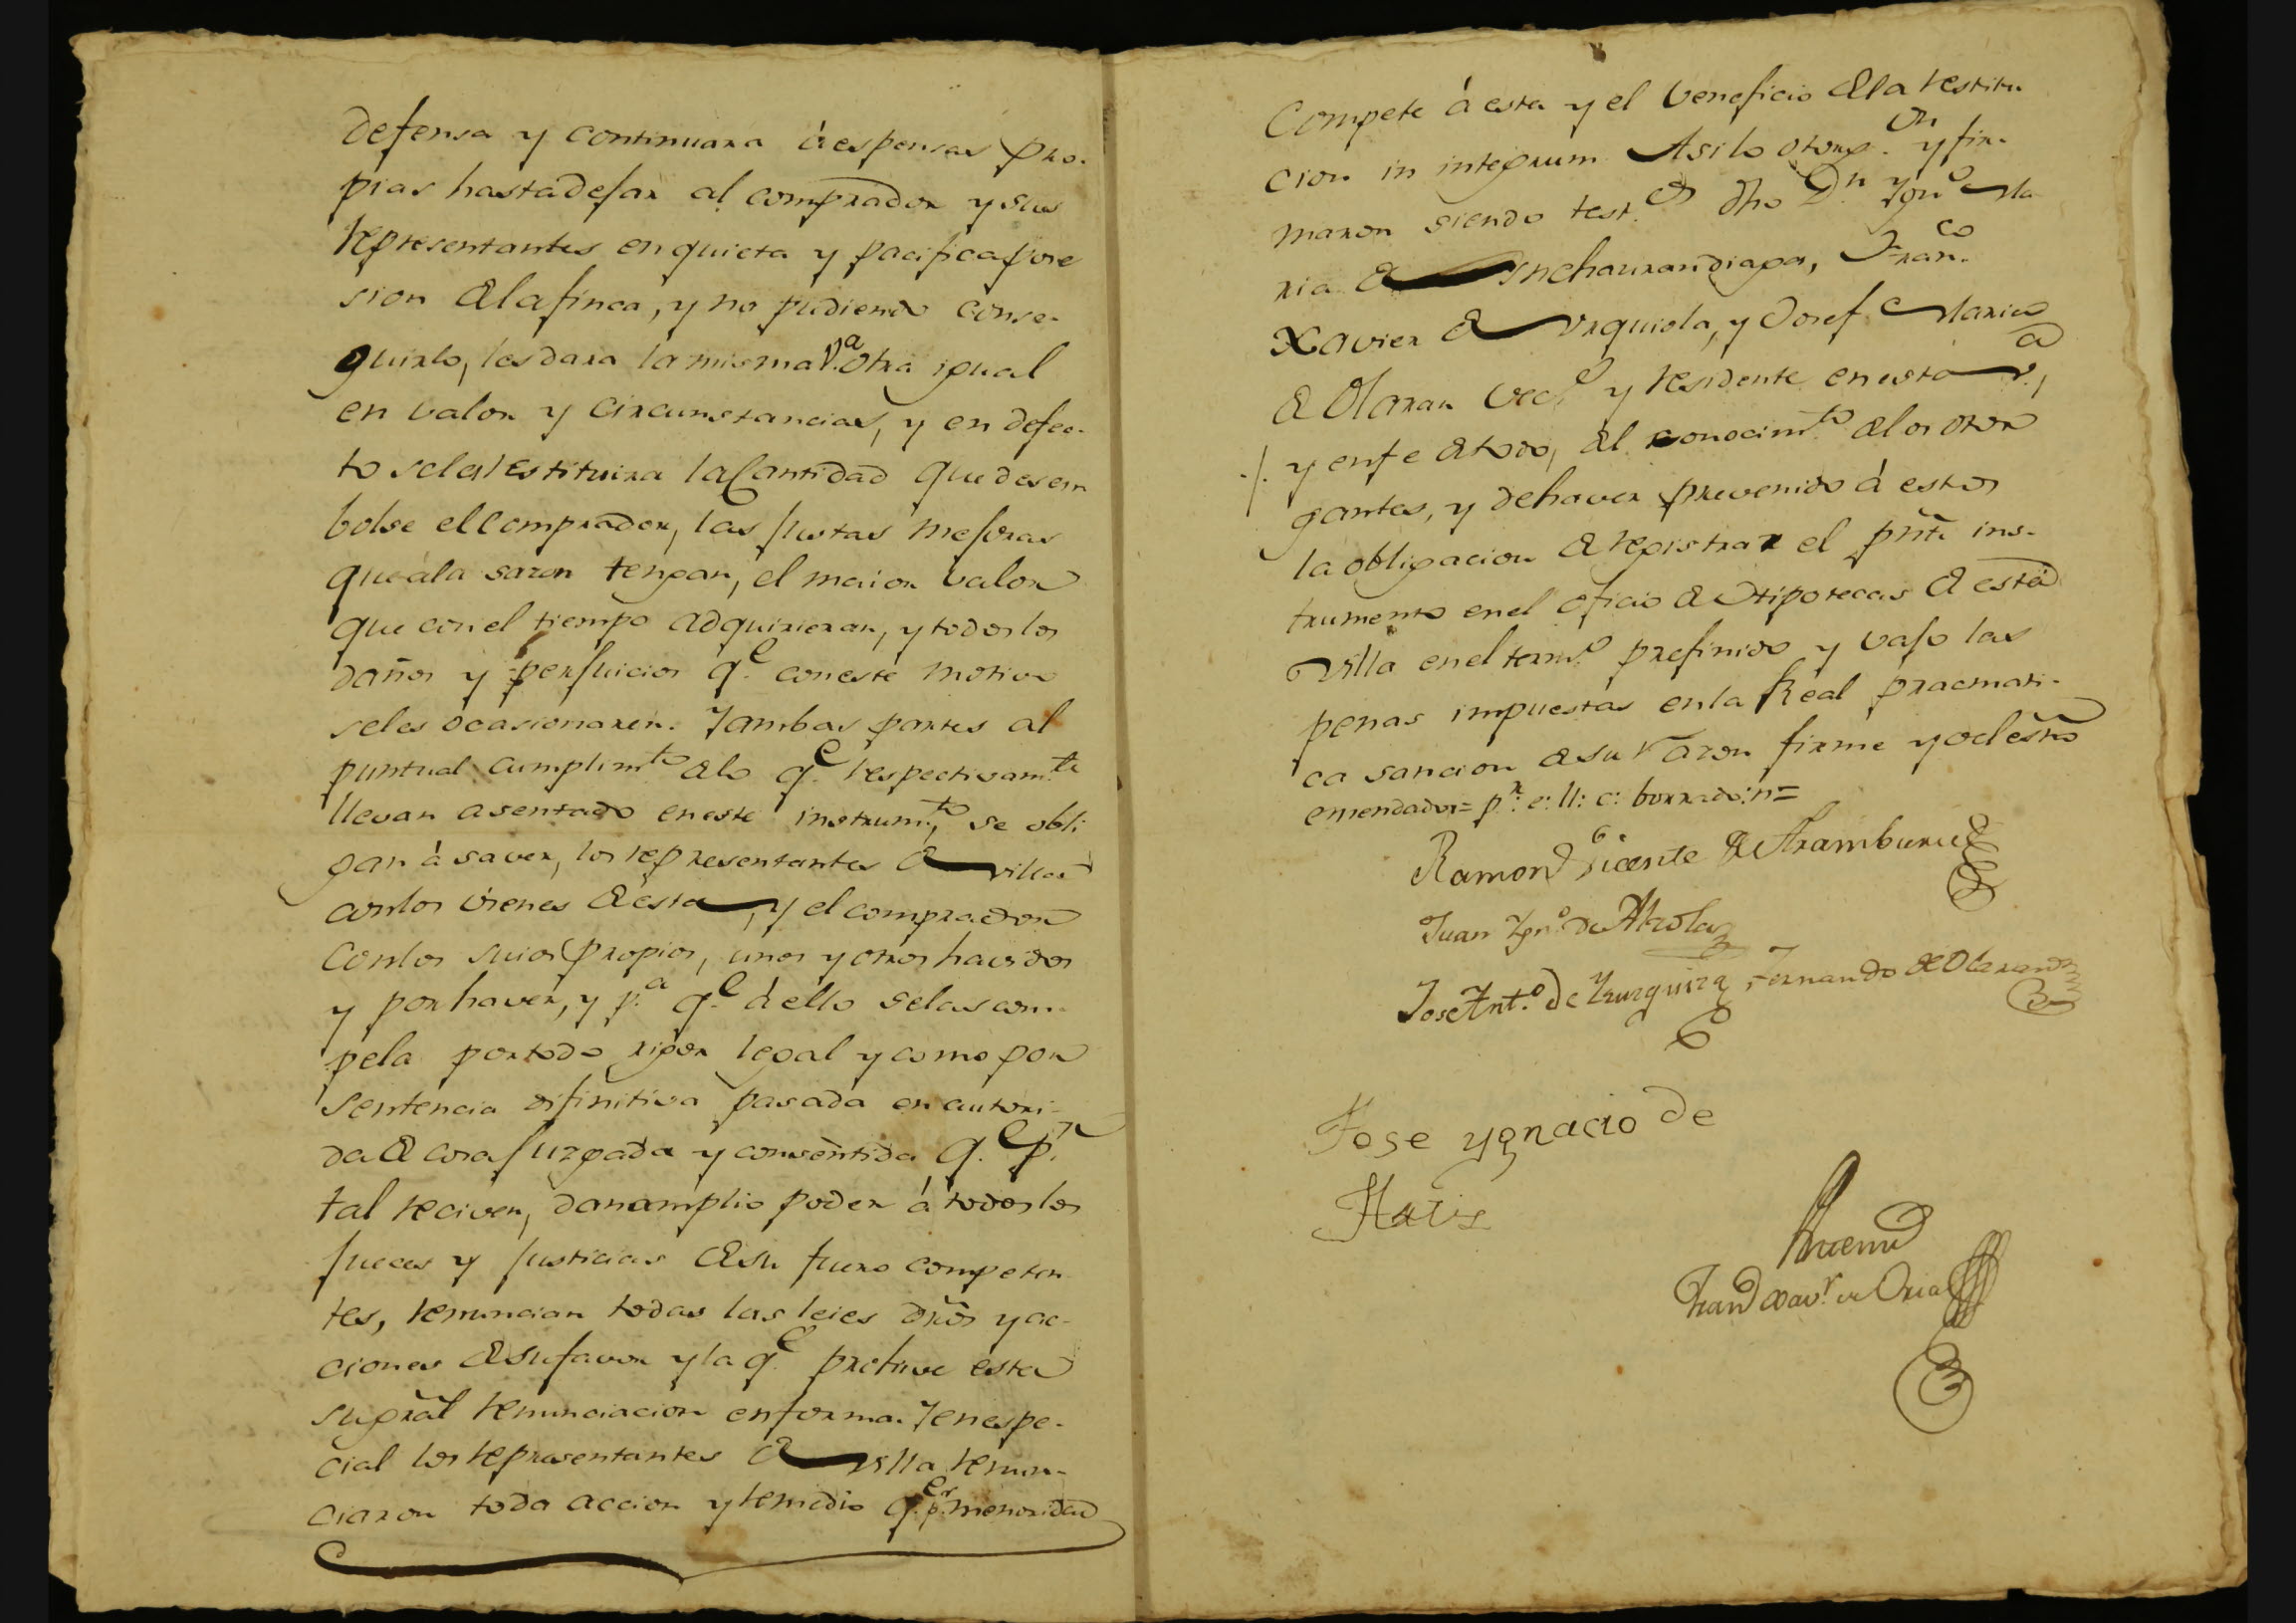 defensa y continuara à espensas pro-
pias hasta dejar al comprador y sus
representantes en quieta y pacifica pose
sion de la finca, y no pudiendo conse-
guirlo, les dara la misma V.ª otra igual
en valor y circunstancias, y en defec-
to se les restituira la Cantidad que desem
bolse el comprador, las justas mejoras
que à la sazon tengan, el maior valor
que con el tiempo adquirieran, y todos los
daños y perjuicios q.e con este motivo
se les ocasionaren. Y ambas partes al
puntual cumplim.to de lo q.e respectivam.te
llevan asentado en este instrum.to, se obli
gan à saver, los representantes de villa
con los vienes de esta, y el comprador
con los suios propios, unos y otros havidos
y por haver, y p.ª q.e à ello se las com
pela por todo rigor legal y como por
sentencia difinitiva pasada en autori-
da de cosa juzgada y consentida q.e p.r
tal reciven, dan amplio poder à todos los
jueces y justicias de su fuero competen
tes, renuncian todas las leies dr̃os y ac-
ciones de su favor y la q.e prohive esta
su gr̃al renunciacion en forma. Y en espe-
cial los representantes de villa renun-
ciaron toda accion y remedio q.e p.r menoridad
Compete à esta y el veneficio de la restitu
cion in integrum Asi lo otorg.on y fir-
maron siendo test.os dho D.n Ygn.o Ma
ria de Inchaurandiaga, Fran.co
Xavier de Urquiola, y Josef Maria
de Olaran vec.s y residente en esta v.ª,
y en fe de todo, del conocim.to de los otor
gantes, y de haver prevenido à estos
la obligacion de registrar el pñte ins-
trumento en el oficio de Hipotecas de esta
villa en el term.o prefinido y vajo las
penas impuestas en la Real pracmati-
ca sancion de su razon firme yo el esño
emendados= p.r: e: ll: c: borrado: n=
Ramon Vicente de Aramburu
Juan Ygn.o de Alzola
Jose Ant.o de Yzurquiza Fernando de Olaran
Jose Ygnacio de
Antemi
Fran.co Xav.r de Oria